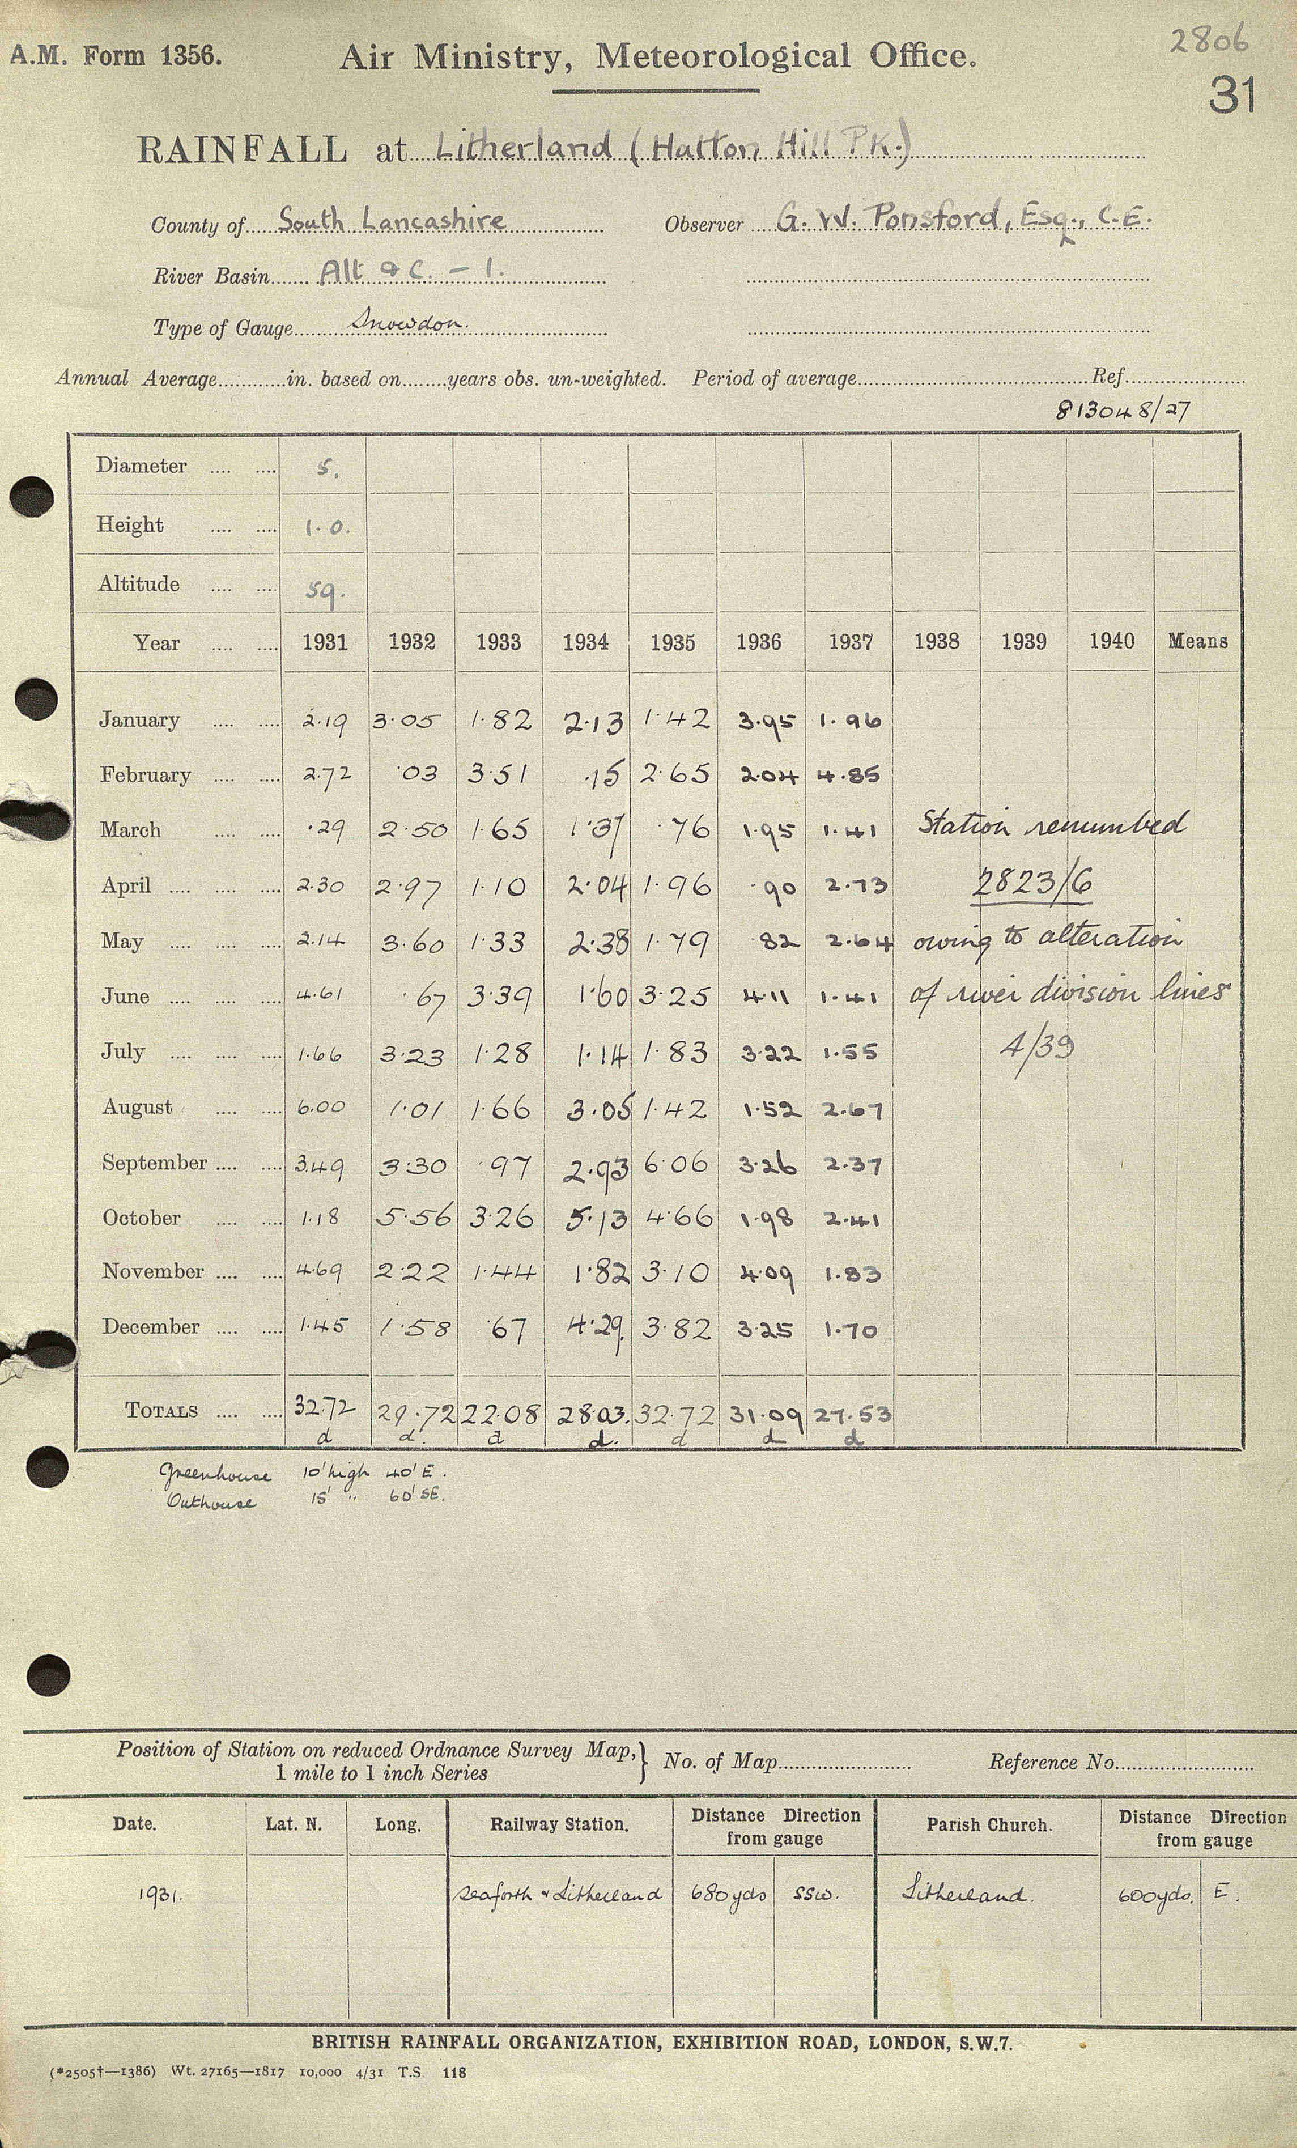 2806
A.M. Form 1356. Air Ministry, Meteorological Office.
31
RAINFALL at Litherland (Hatton Hill PK.)
County of South Lancashire Observer G. W. Ponsford, Esq., C.E.
River Basin Alt & C. - 1.
Type of Gauge Snowdon
Annual Average in. based on years obs. un-weighted. Period of average Ref.
813048/27
Diameter 5.
Height 1.0.
Altitude 59.
Year 1931 1932 1933 1934 1935 1936 1937 1938 1939 1940 Means
January 2.19 3.05 1.82 2.13 1.42 3.95 1.96
February 2.72 .03 3.51 .15 2.65 2.04 4.85
March .29 2.50 1.65 1.37 .76 1.95 1.41 Station renumbed
April 2.30 2.97 1.10 2.04 1.96 .90 2.73 2823/6
May 2.14 3.60 1.33 2.38 1.79 .82 2.64 owing to alteration
June 4.61 .67 3.39 1.60 3.25 4.11 1.41 of river division lines
July 1.66 3.23 1.28 1.14 1.83 3.22 1.55 4/39
August 6.00 1.01 1.66 3.05 1.42 1.52 2.67
September 3.49 3.30 .97 2.93 6.06 3.26 2.37
October 1.18 5.56 3.26 5.13 4.66 1.98 2.41
November 4.69 2.22 1.44 1.82 3.10 4.09 1.83
December 1.45 1.58 .67 4.29 3.82 3.25 1.70
TOTALS 32.72 29.72 22.08 28.03. 32.72 31.09 27.53
d d. d d. d d d
Greenhouse 10' high 40' E.
Outhouse 15' " 60' SE.
Position of Station on reduced Ordnance Survey Map, } No. of Map Reference No.
1 mile to 1 inch Series
Date. Lat. N. Long. Railway Station. Distance Direction from gauge Parish Church. Distance Direction from gauge
1931. Seaforth & Litherland 680yds SSW. Litherland. 600yds. E.
BRITISH RAINFALL ORGANIZATION, EXHIBITION ROAD, LONDON, S.W.7.
(*2505†—1386) Wt. 27165—1817 10,000 4/31 T.S. 118